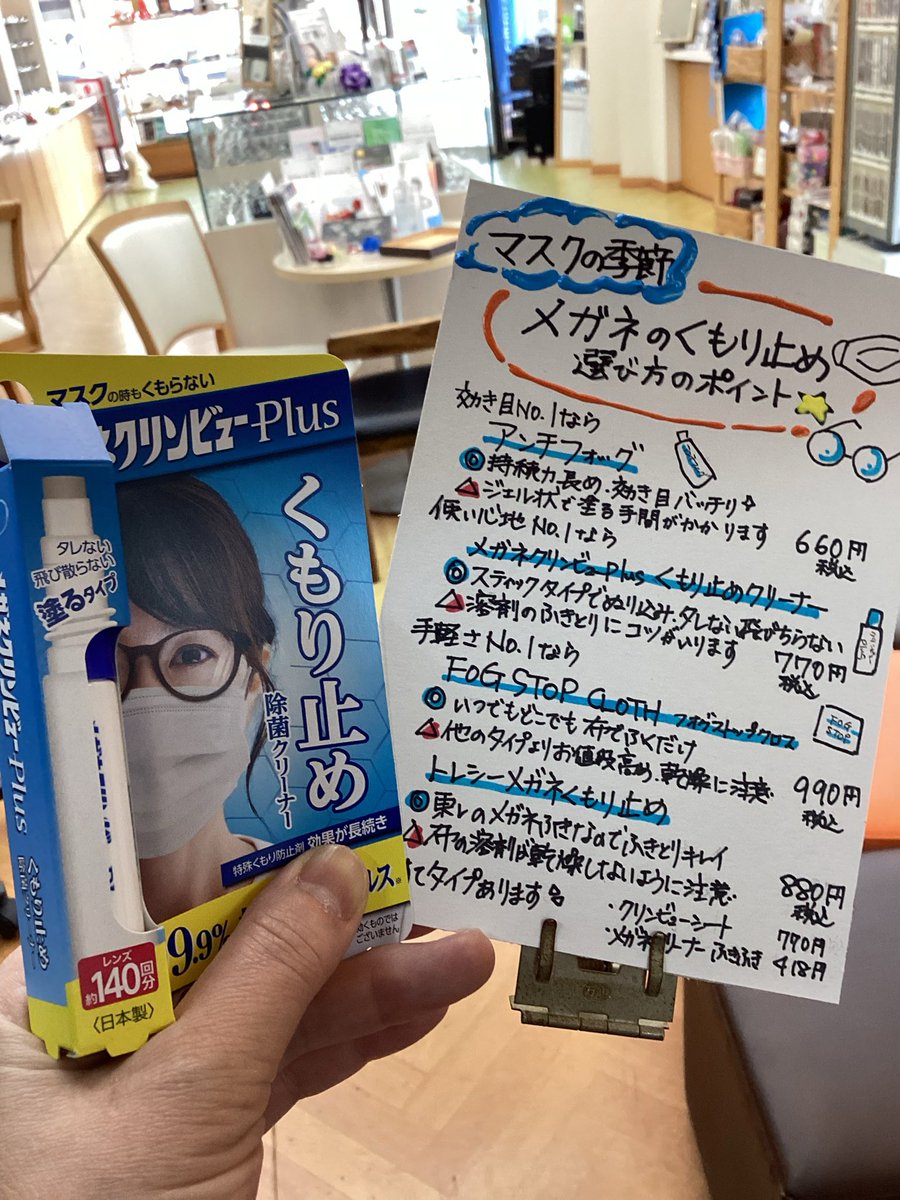 マスクの時もくもらない
クリンビューPlus
くもり止め
除菌クリーナー
タレない
飛び散らない
塗るタイプ
特殊くもり防止剤 効果が長続き
9.9%
レンズ
約140回分
〈日本製〉
くもり止め
マスクの季節
メガネのくもり止め
選び方のポイント
効き目No.1なら
アンチフォッグ
◎持続力長め、効き目バッチリ
△ジェル状で塗る手間がかかります
660円
税込
使い心地No.1なら
メガネクリンビュPlusくもり止めクリーナー
◎スティックタイプでぬり込み、タレない飛びちらない
△溶剤のふきとりにコツがいります
770円
税込
手軽さNo.1なら
FOG STOP CLOTH フォグストップクロス
FOG
STOP
◎いつでもどこでも布でふくだけ
△他のタイプよりお値段高め、乾燥に注意
990円
税込
トレシーメガネくもり止め
◎東レのメガネふきなのでふきとりキレイ
△布の溶剤が乾燥しないように注意
880円
税込
タイプあります
・クリンビューシート
770円
・メガネクリーナーふきふき
418円